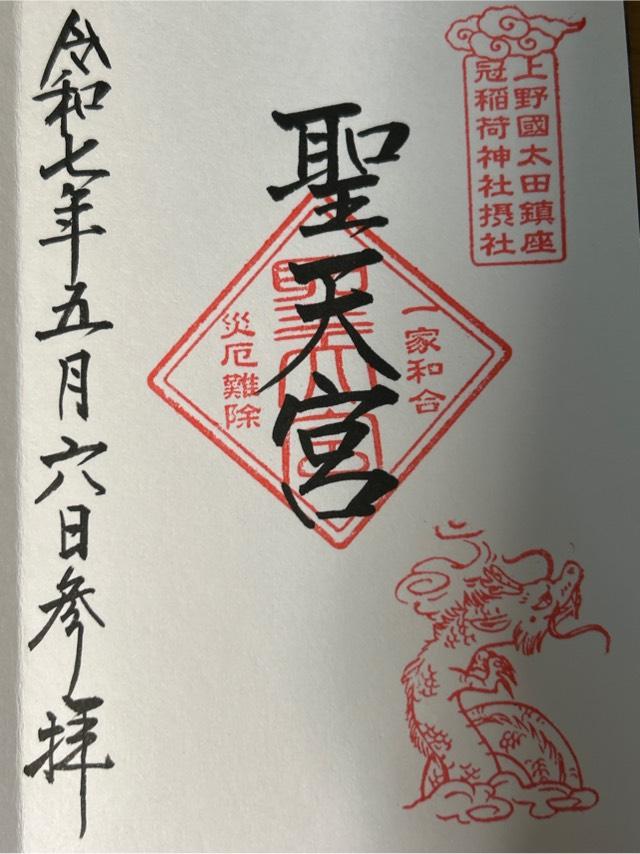 上野國太田鎮座
冠稲荷神社摂社
聖天宮
一家和合
聖天宮
災厄難除
令和七年五月六日参拝